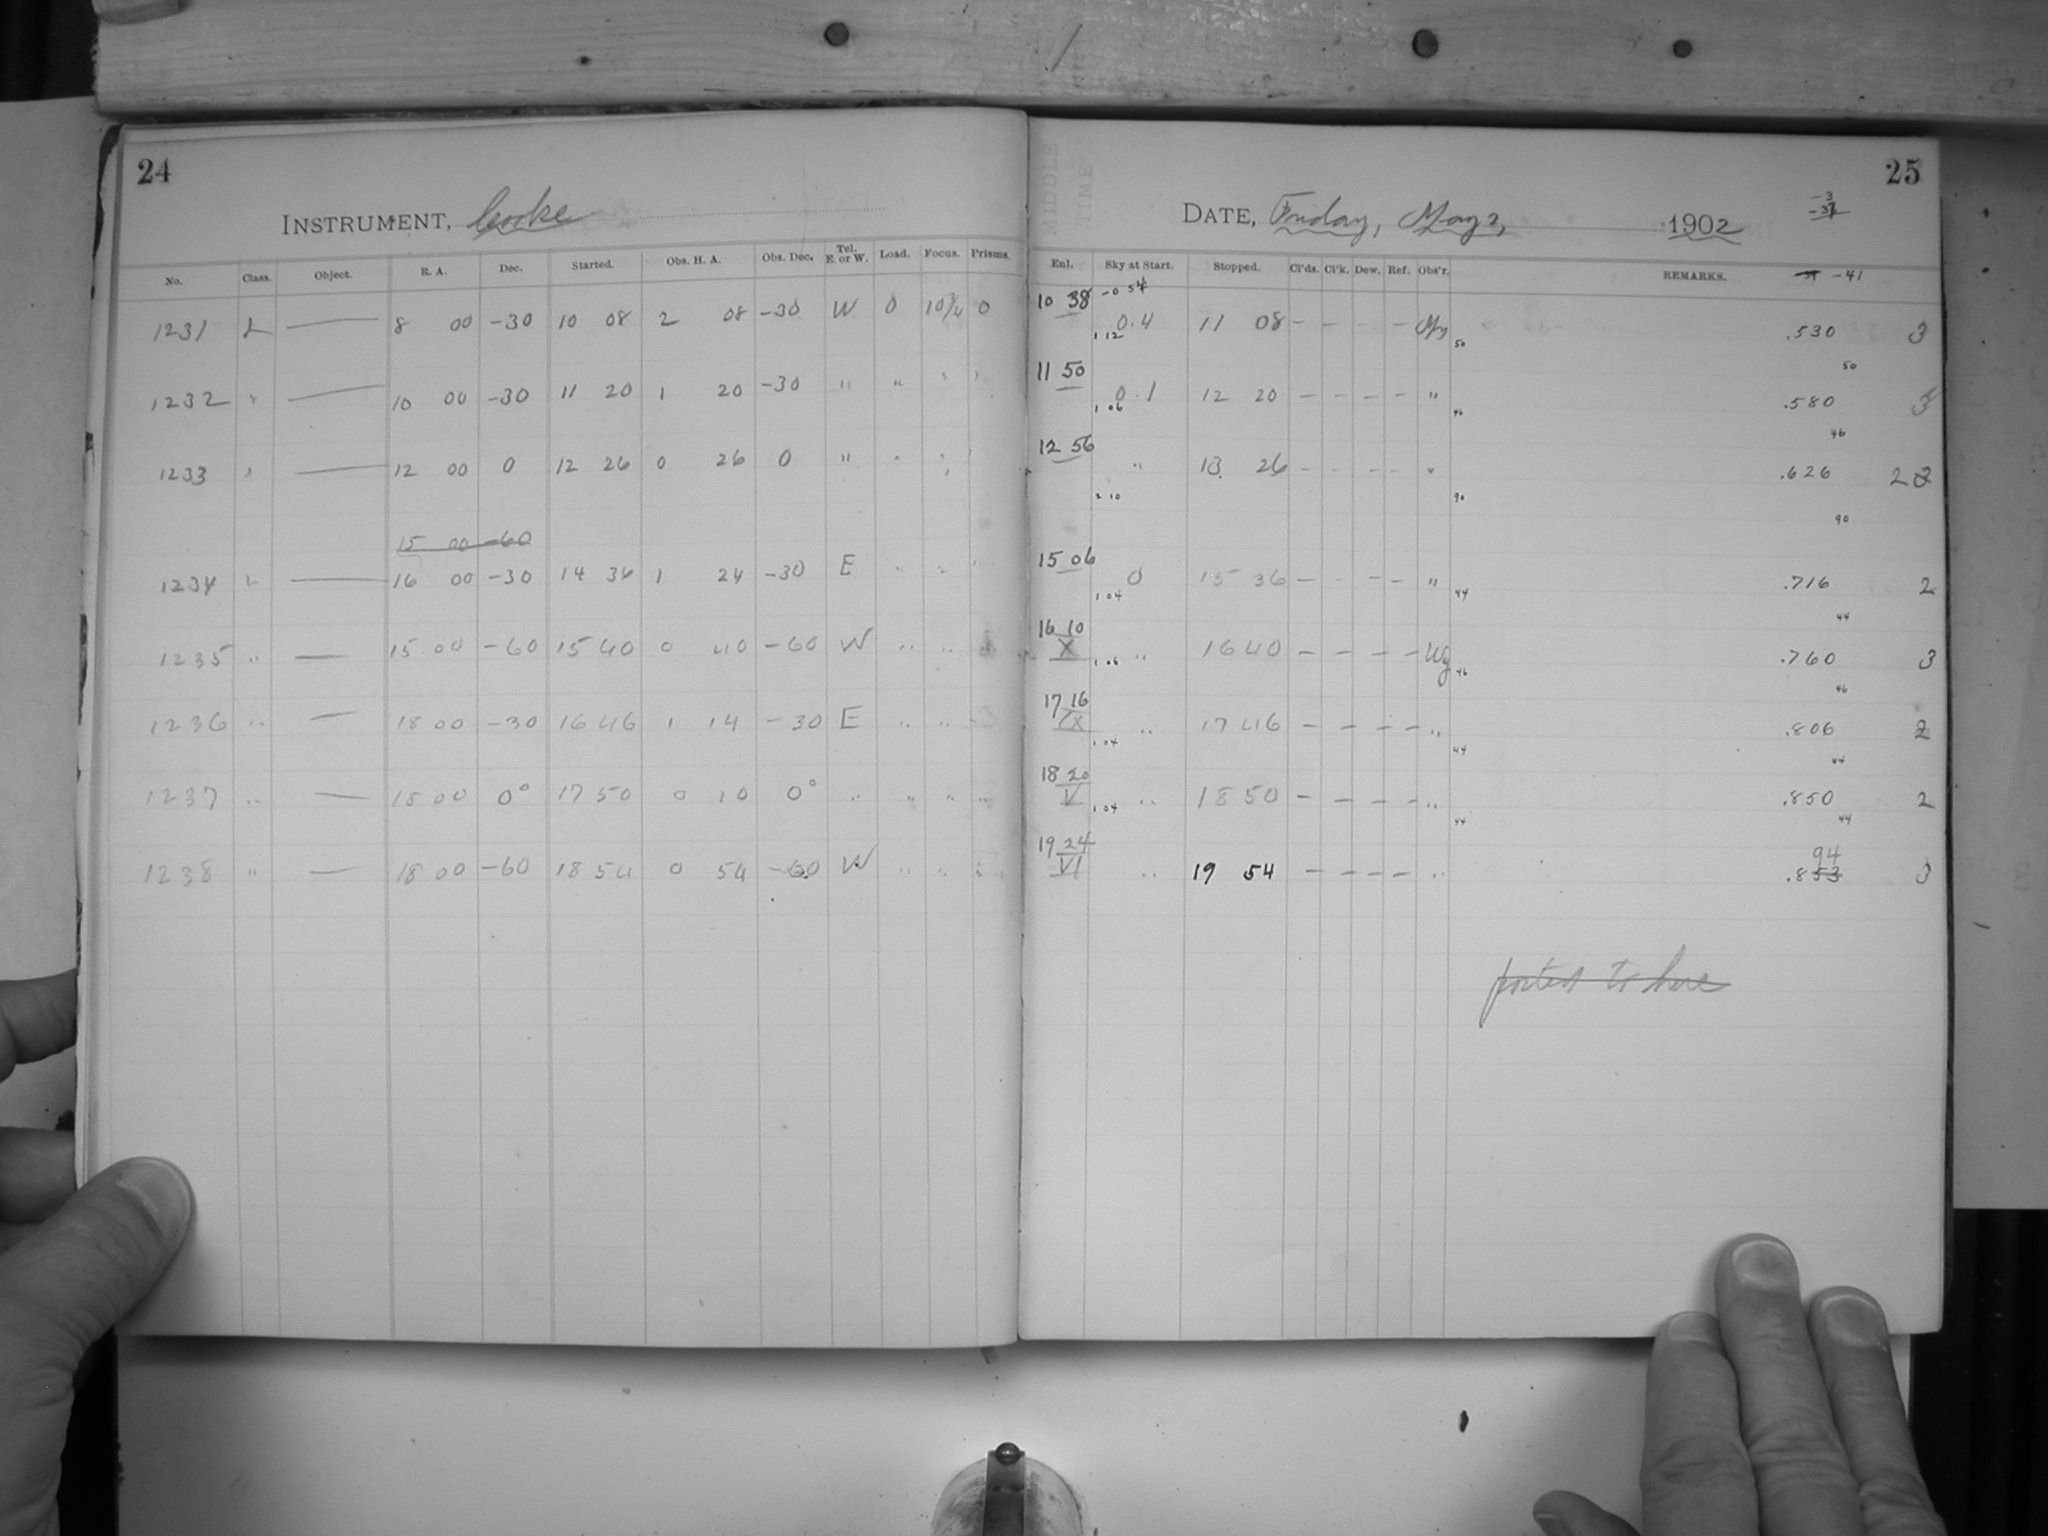 24
INSTRUMENT, Cooke
No. Class. Object. R. A. Dec. Started. Obs. H. A. Obs. Dec. Tel. E. or W. Load. Focus. Prisms.
1231 L — 8 00 -30 10 08 2 08 -30 W 0 10 3/4 0
1232 " — 10 00 -30 11 20 1 20 -30 " " " "
1233 " — 12 00 0 12 26 0 26 0 " " " "
15 00 -60
1234 L — 16 00 -30 14 36 1 24 -30 E " " "
1235 " — 15 00 -60 15 40 0 40 -60 W " "
1236 " — 18 00 -30 16 46 1 14 -30 E " " "
1237 " — 18 00 0° 17 50 0 10 0° " " " "
1238 " — 18 00 -60 18 54 0 54 -60 W " " "
MIDDLE TIME
25
DATE, Friday, May 2, 1902
-3
-37
Enl. Sky at Start. Stopped. Cl'ds. Cl'k. Dew. Ref. Obs'r. REMARKS. -41
10 38 -0 54
0.4 11 08 - - - - .530 3
1 12 50
11 50 50
0.1 12 20 - - - - " .580 3
1 06 46
12 56 46
" 13 26 - - - - " .626 2
2 10 90
90
15 06
0 15 36 - - - - " .716 2
1 04 44
16 10 44
X " 16 40 - - - - .760 3
1 06 46
17 16 46
IX " 17 46 - - - - " .806 2
1 04 44
18 20 44
V " 18 50 - - - - " .850 2
1 04 44
19 24 44
94
VI " 19 54 - - - - " .853 3
posted to here